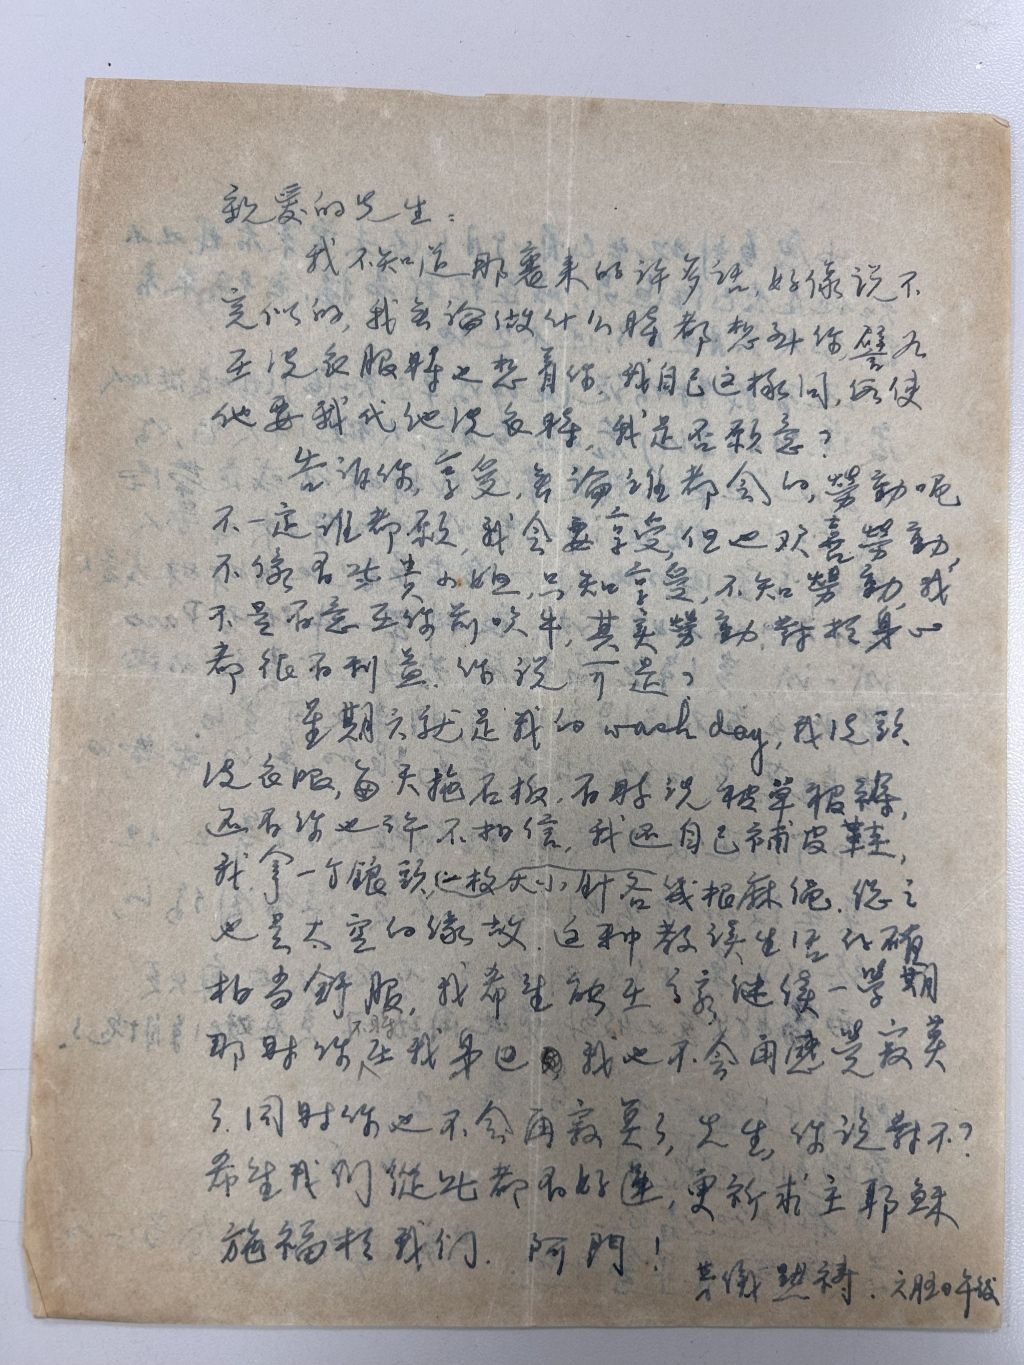 親爱的先生：
我不知道那裏来的许多话，好像说不
完似的，我無論做什么時都想到你，譬如
至洗衣服時也想着你，我自己这樣問，假使
他要我代他洗衣時，我是否願意？
告诉你，享受，無論誰都会的，勞動呢
不一定谁都願，我会要享受，但也欢喜勞動，
不像有些贵小姐，只知享受，不知勞動，我
不是有意在你前吹牛，其实勞動，對於身心
都很有利益，你说可是？
星期六就是我的 wash day，我洗头
洗衣服，每天拖石板，有時洗被單被褥，
还有你也许不相信，我还自己補皮鞋，
我拿一个鎚頭，大小針各幾根麻绳，总之
也是太空的缘故，这种教读生活的確
相当舒服，我希望能在继续一學期
那时你在我身边，我也不会再感觉寂莫
了，同时你也不会再寂莫了，先生，你说對不？
希望我们從此都有好運，更祈求主耶穌
施福於我们，阿門！
六月五日午後